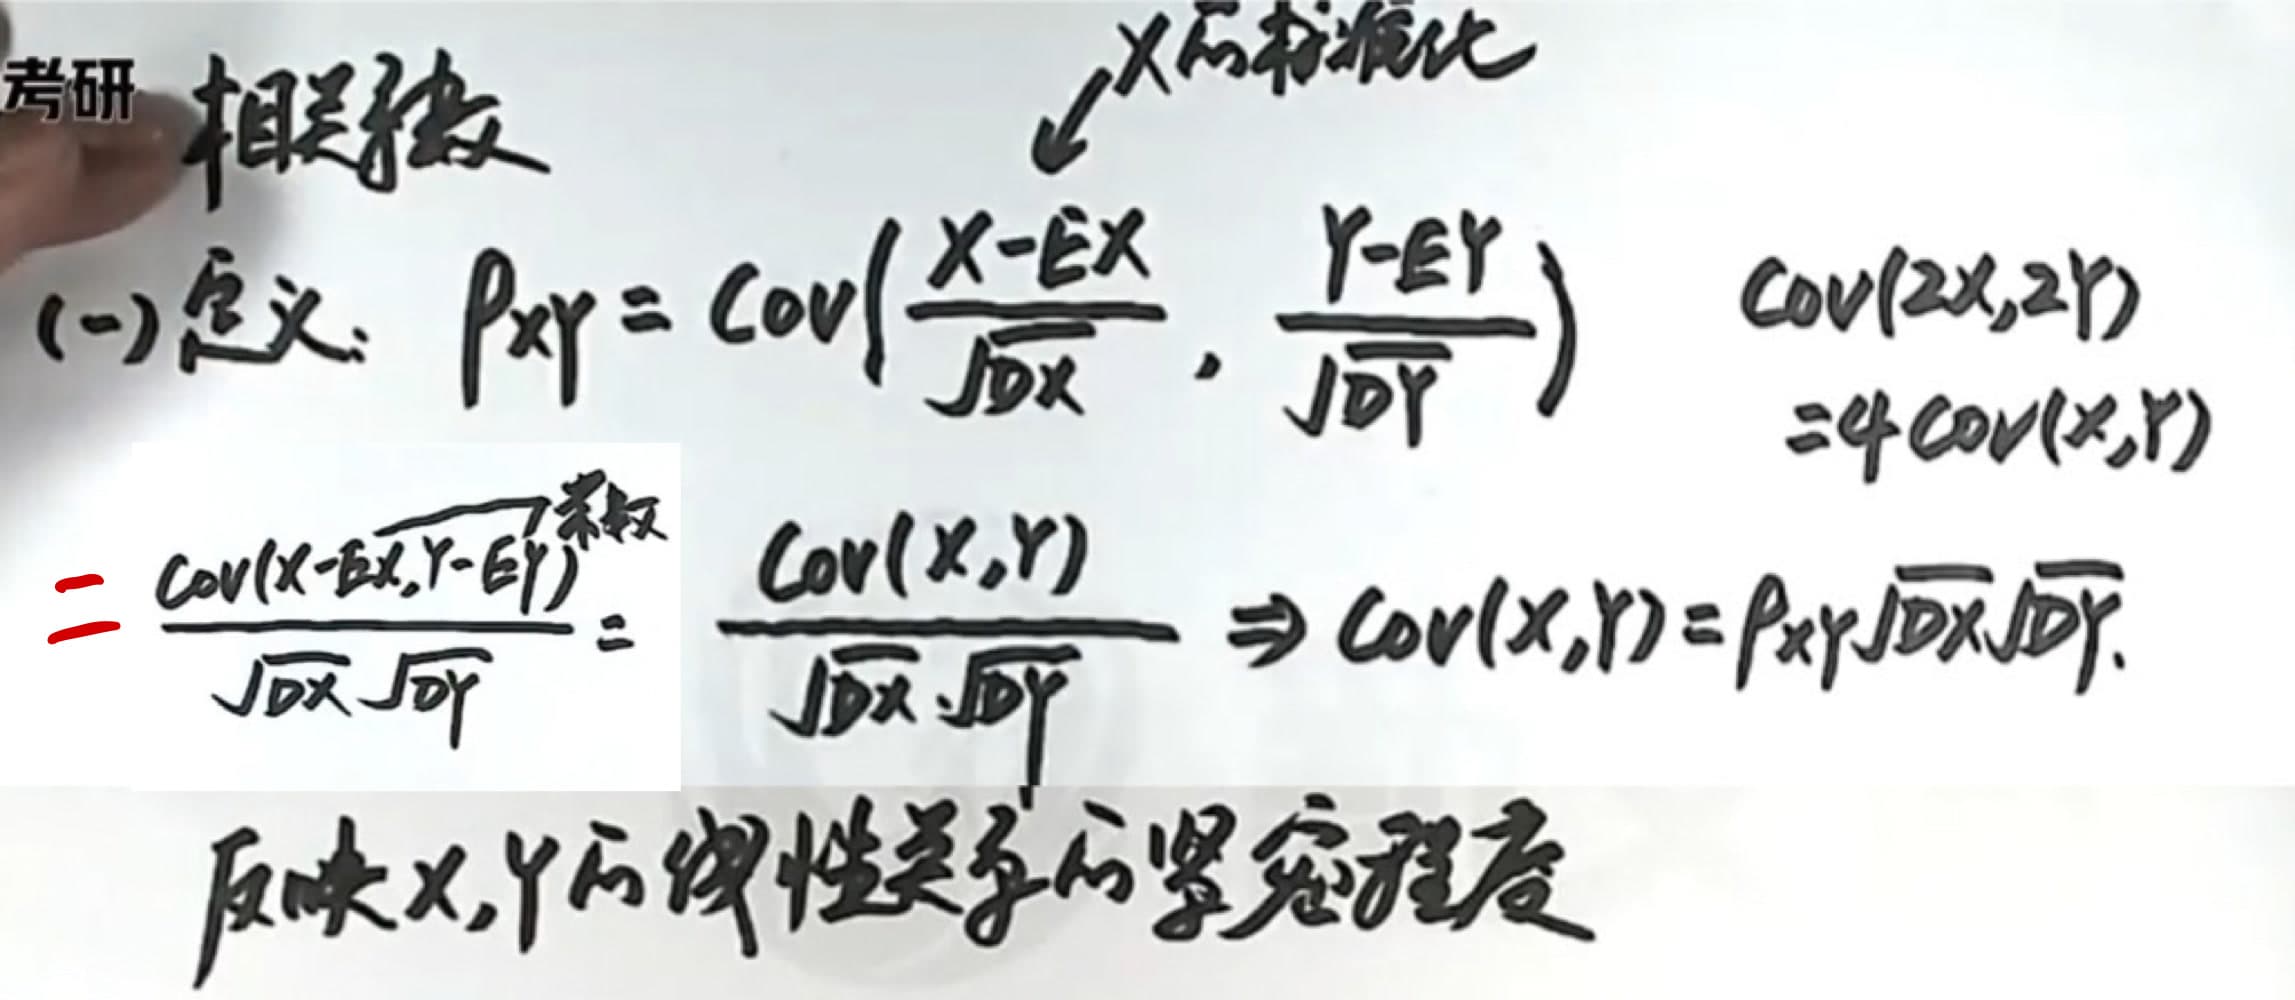 X的标准化
考研 相关系数
(一) 定义: ρXY = Cov( (X-EX)/√DX , (Y-EY)/√DY )
Cov(2X,2Y)
=4Cov(X,Y)
常数
= Cov(X-EX,Y-EY)/(√DX √DY) = Cov(X,Y)/(√DX·√DY) ⇒ Cov(X,Y)=ρXY√DX√DY.
反映X,Y的线性关系的紧密程度